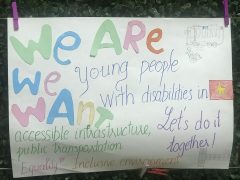 We ARe
We young people
with disabilities in
WANT Let's do it
accessible infrastructure, together!
public transportation
Equality Inclusive environment